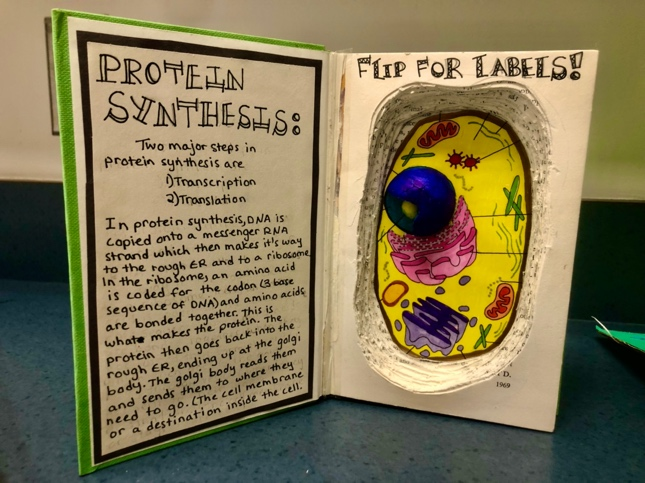 PROTEIN
SYNTHESIS:
Two major steps in
protein synthesis are
1)Transcription
2)Translation
In protein synthesis, DNA is
copied onto a messenger RNA
strand which then makes it's way
to the rough ER and to a ribosome.
In the ribosome, an amino acid
is coded for the codon (3 base
sequence of DNA) and amino acids
are bonded together. This is
what makes the protein. The
protein then goes back into the
rough ER, ending up at the golgi
body. The golgi body reads them
and sends them to where they
need to go. (The cell membrane
or a destination inside the cell.
FLIP FOR LABELS!
D.
1969